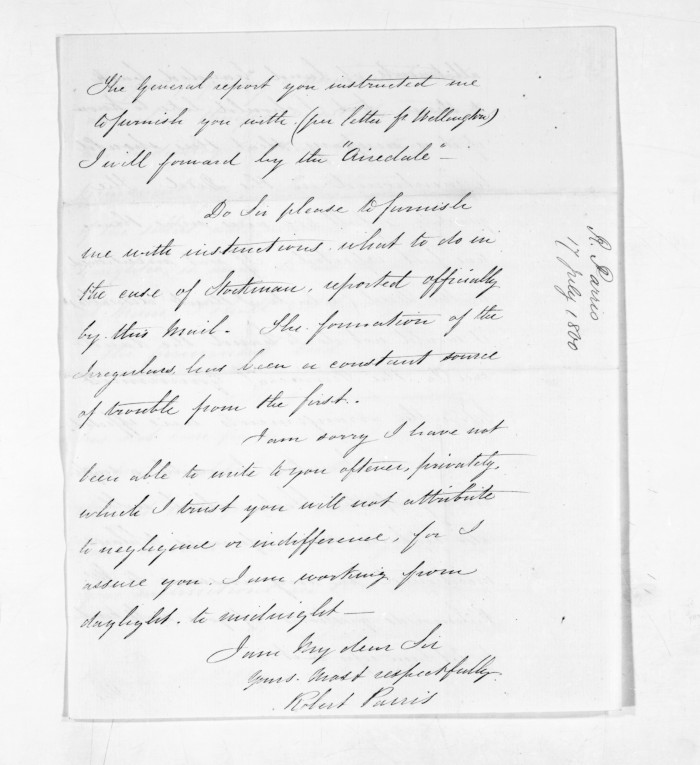 The General report you instructed me
to furnish you with (per letter pr Wellington)
I will forward by the "Airedale" —
Do Sir please to furnish
me with instructions what to do in
the case of Stockman, reported officially
by this Mail. The formation of the
Irregulars has been a constant source
of trouble from the first.
I am sorry I have not
been able to write to you oftener, privately,
which I trust you will not attribute
to negligence or indifference, for I
assure you I am working from
daylight to midnight —
I am My dear Sir
Yours Most respectfully
Robert Parris
R. Parris
17 July 1860